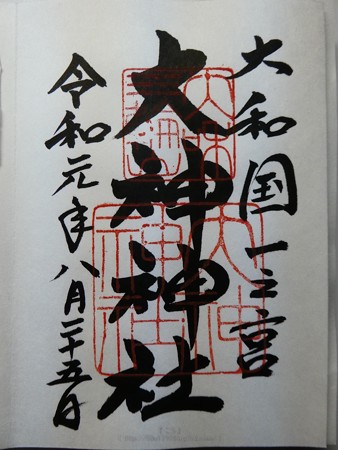 大和国一之宮
大神神社
令和元年八月二十五日